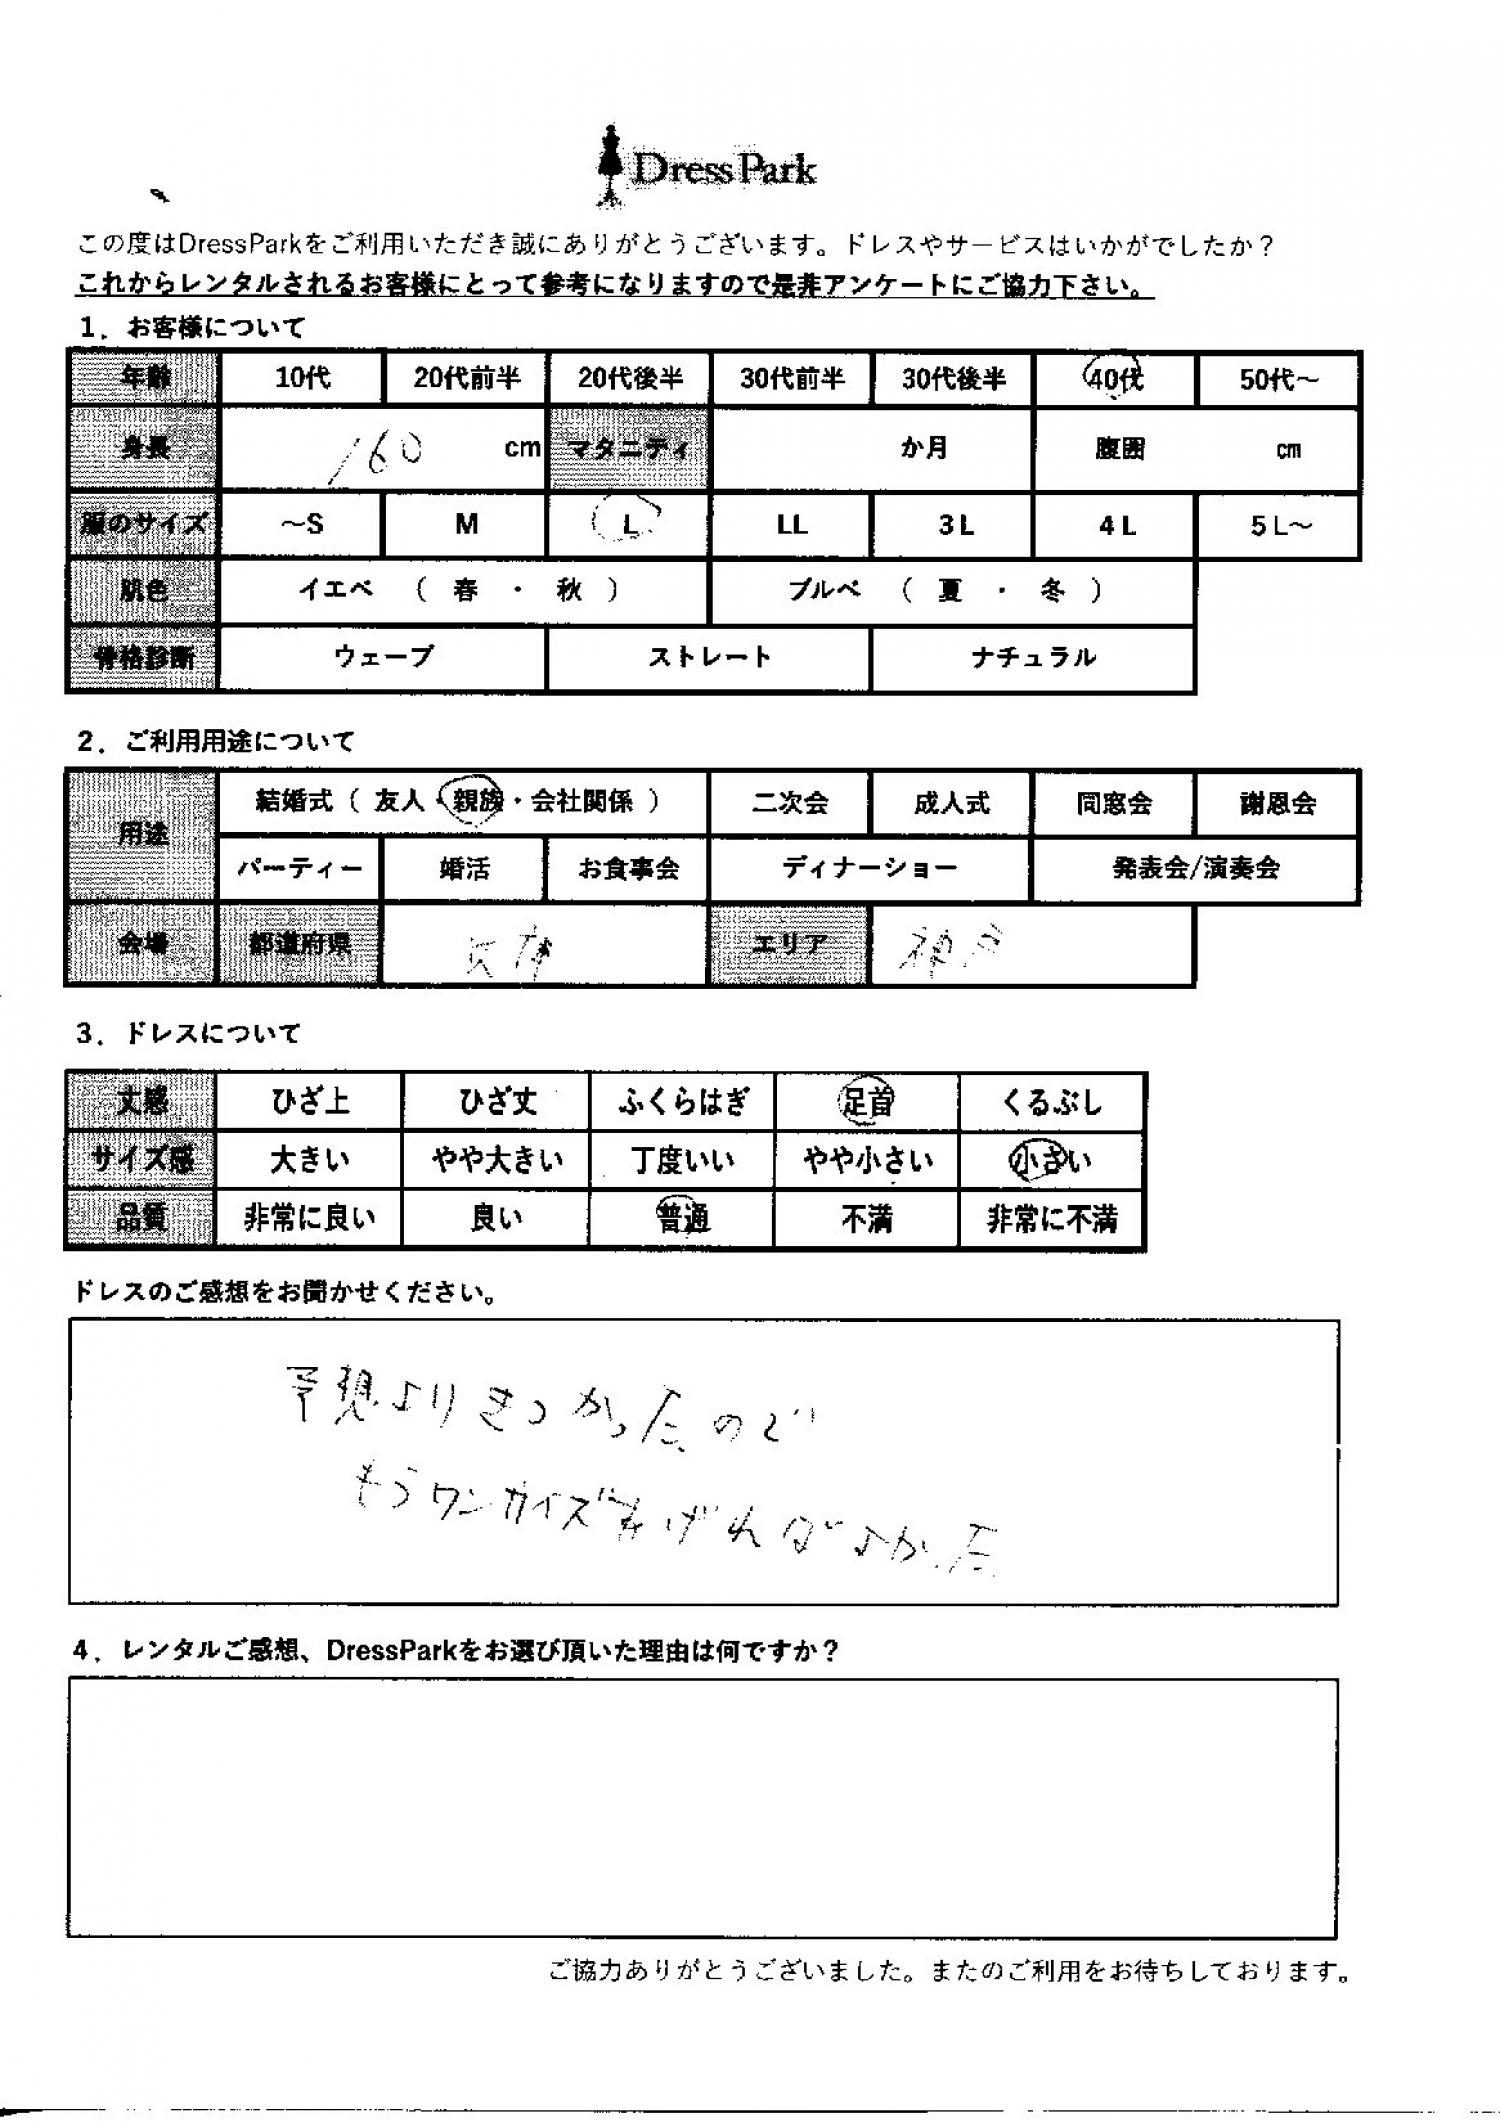 DressPark
この度はDressParkをご利用いただき誠にありがとうございます。ドレスやサービスはいかがでしたか？
これからレンタルされるお客様にとって参考になりますので是非アンケートにご協力下さい。
1．お客様について
年齢 10代 20代前半 20代後半 30代前半 30代後半 40代 50代～
身長 160 cm マタニティ か月 腹囲 cm
服のサイズ ～S M L LL 3L 4L 5L～
肌色 イエベ （ 春 ・ 秋 ） ブルベ （ 夏 ・ 冬 ）
骨格診断 ウェーブ ストレート ナチュラル
2．ご利用用途について
用途 結婚式（ 友人・親族・会社関係 ） 二次会 成人式 同窓会 謝恩会
パーティー 婚活 お食事会 ディナーショー 発表会/演奏会
会場 都道府県 兵庫 エリア 神戸
3．ドレスについて
丈感 ひざ上 ひざ丈 ふくらはぎ 足首 くるぶし
サイズ感 大きい やや大きい 丁度いい やや小さい 小さい
品質 非常に良い 良い 普通 不満 非常に不満
ドレスのご感想をお聞かせください。
予想よりきつかったので
もうワンサイズあげればよかった
4．レンタルご感想、DressParkをお選び頂いた理由は何ですか？
ご協力ありがとうございました。またのご利用をお待ちしております。